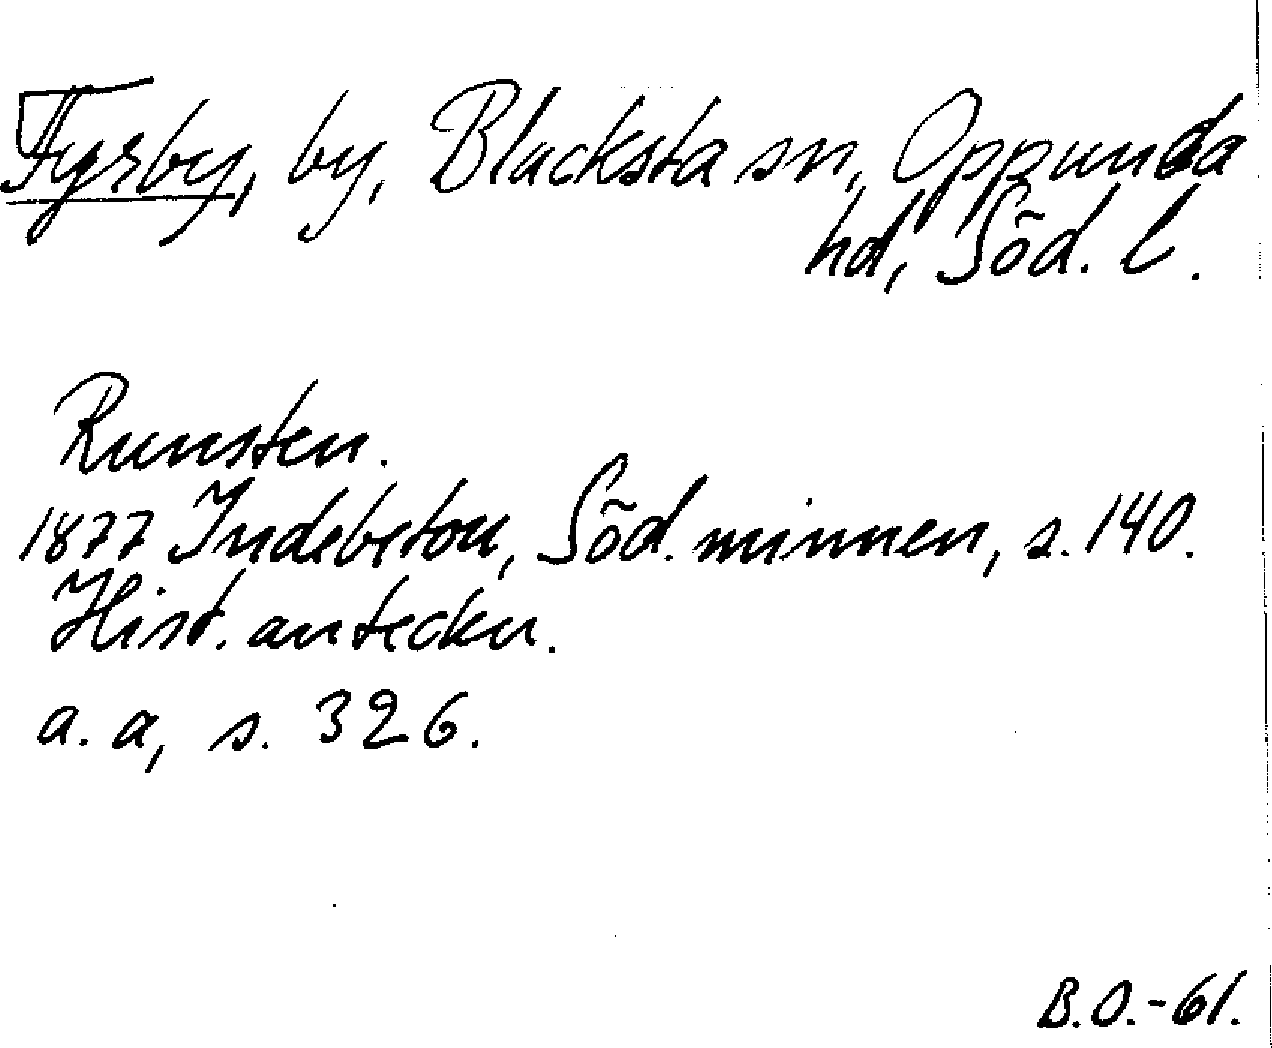 Fyrby, by, Blacksta sn, Oppunda
hd, Söd. l.
Runsten.
1877 Indebetou, Söd. minnen, s. 140.
Hist. anteckn.
a. a, s. 326.
B.O.-61.